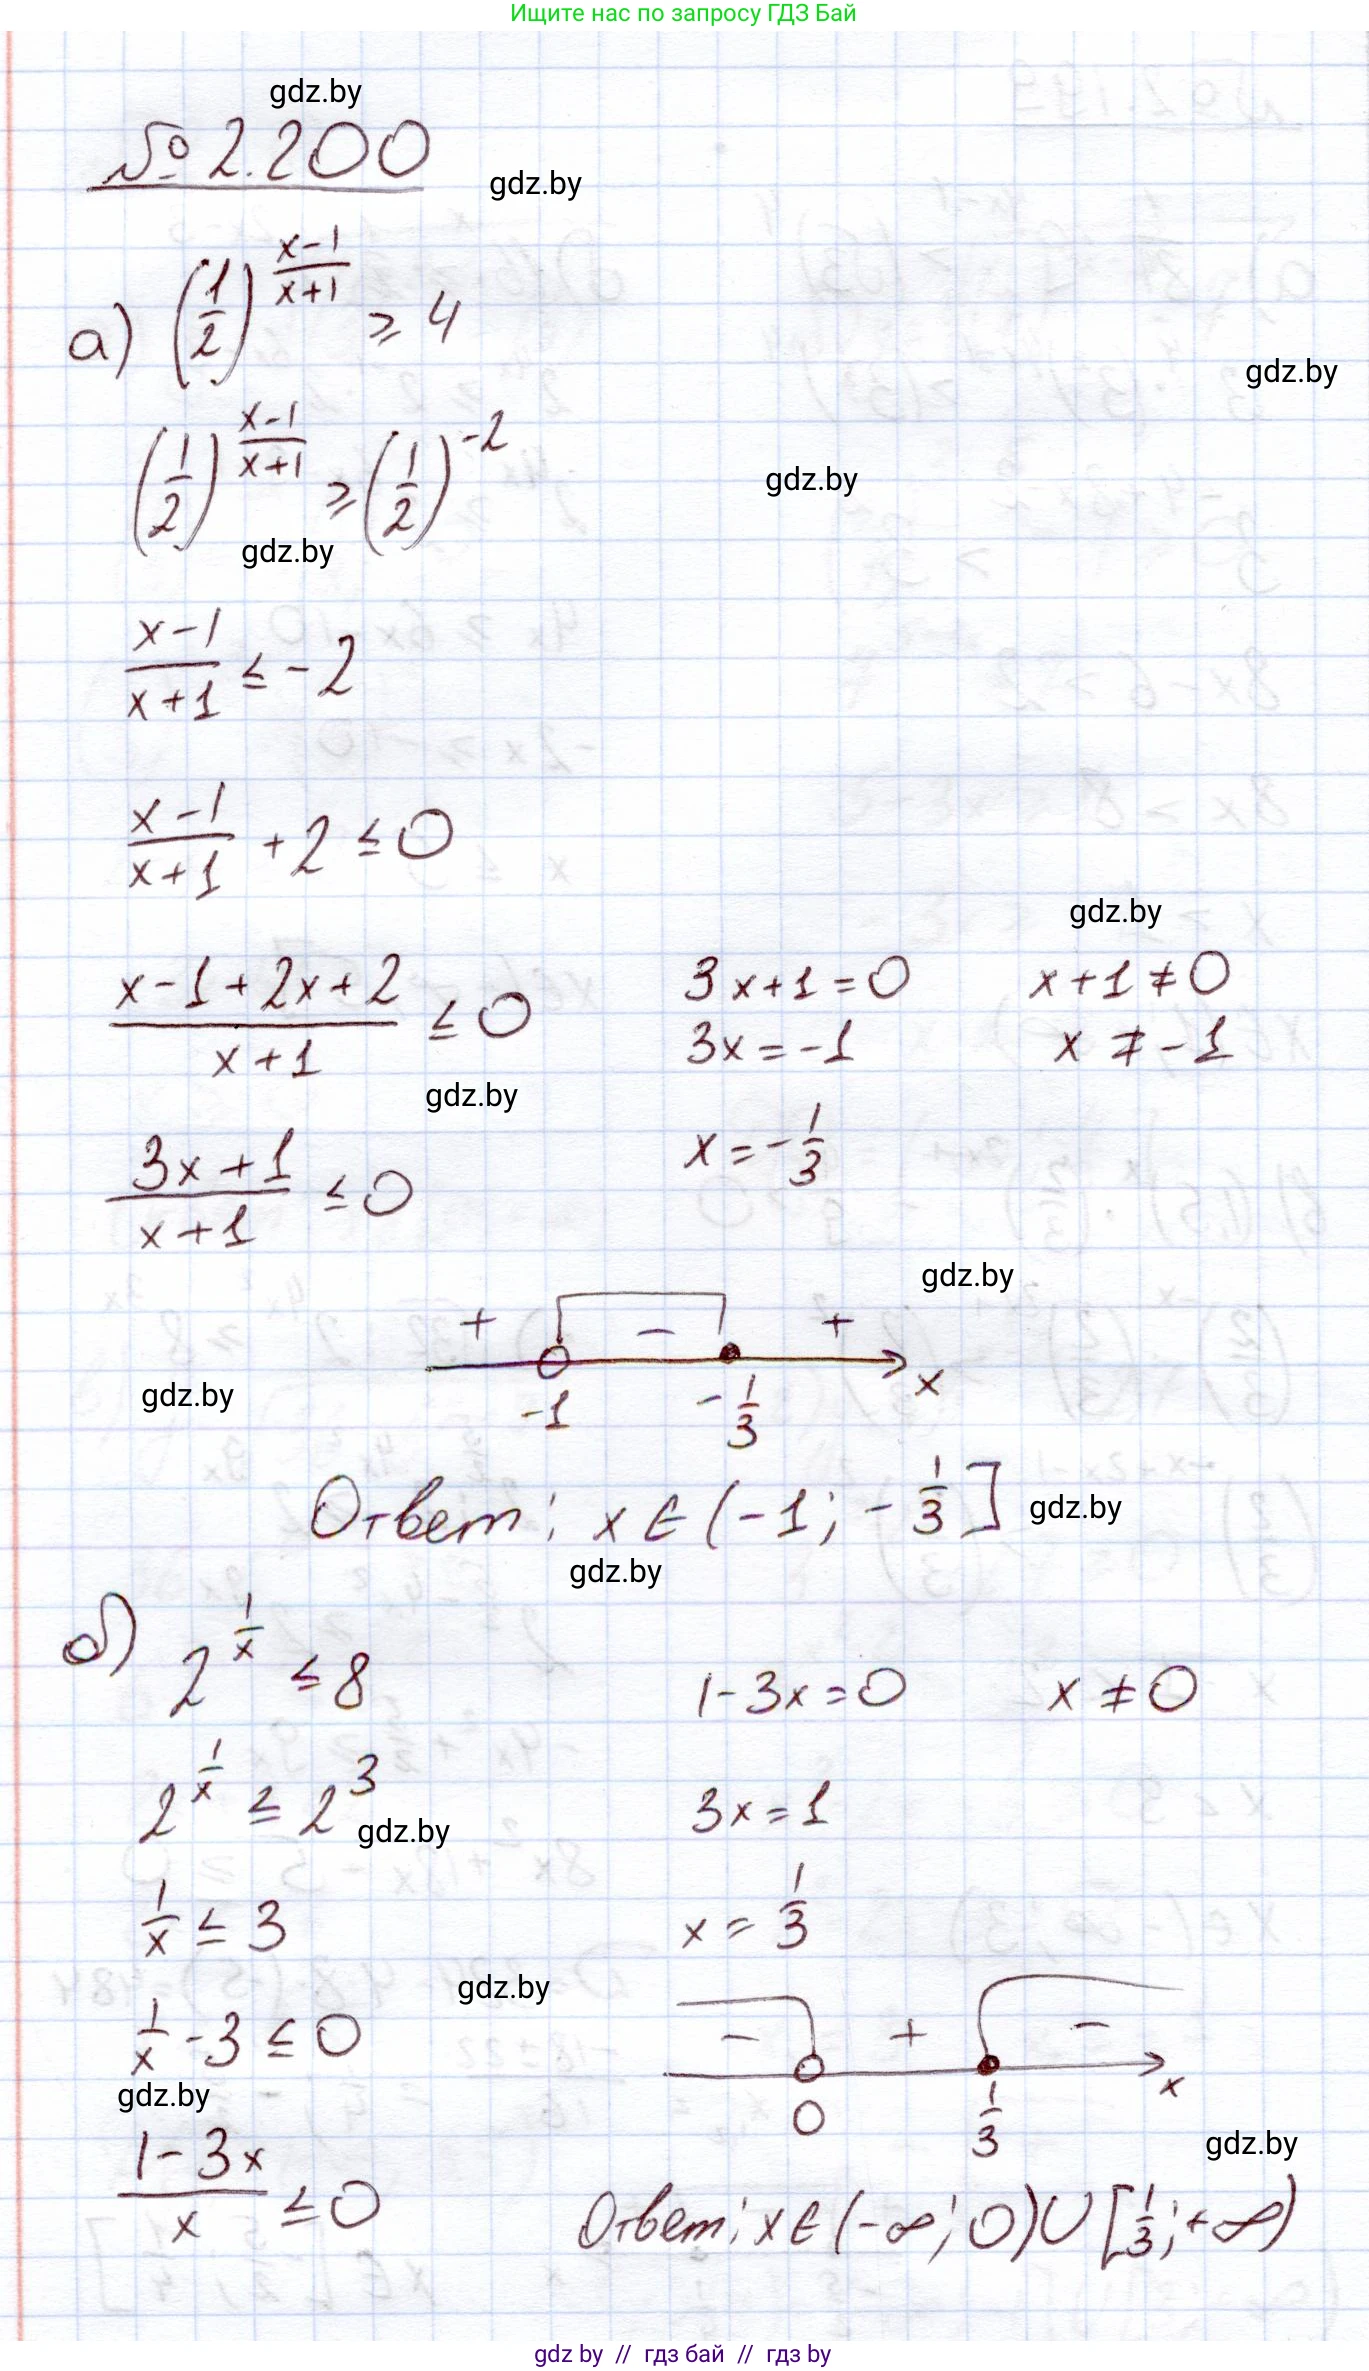 Ищите нас по запросу ГДЗ Бай
gdz.by
№ 2.200
gdz.by
а) (1/2)^((x-1)/(x+1)) ⩾ 4
gdz.by
(1/2)^((x-1)/(x+1)) ⩾ (1/2)^(-2)
gdz.by
gdz.by
(x-1)/(x+1) ≤ -2
(x-1)/(x+1) + 2 ≤ 0
gdz.by
(x-1+2x+2)/(x+1) ≤ 0
3x+1=0
x+1≠0
3x=-1
x ≠ -1
gdz.by
(3x+1)/(x+1) ≤ 0
x=-1/3
gdz.by
+ - +
x
gdz.by
-1 -1/3
Ответ: x∈(-1; -1/3]
gdz.by
gdz.by
б) 2^(1/x) ≤ 8
1-3x=0
x≠0
2^(1/x) ≤ 2^3
3x=1
gdz.by
1/x ≤ 3
x = 1/3
gdz.by
1/x - 3 ≤ 0
- + -
x
gdz.by
0 1/3
gdz.by
(1-3x)/x ≤ 0
Ответ: x∈(-∞; 0)∪[1/3; +∞)
gdz by // гдз бай // гдз by